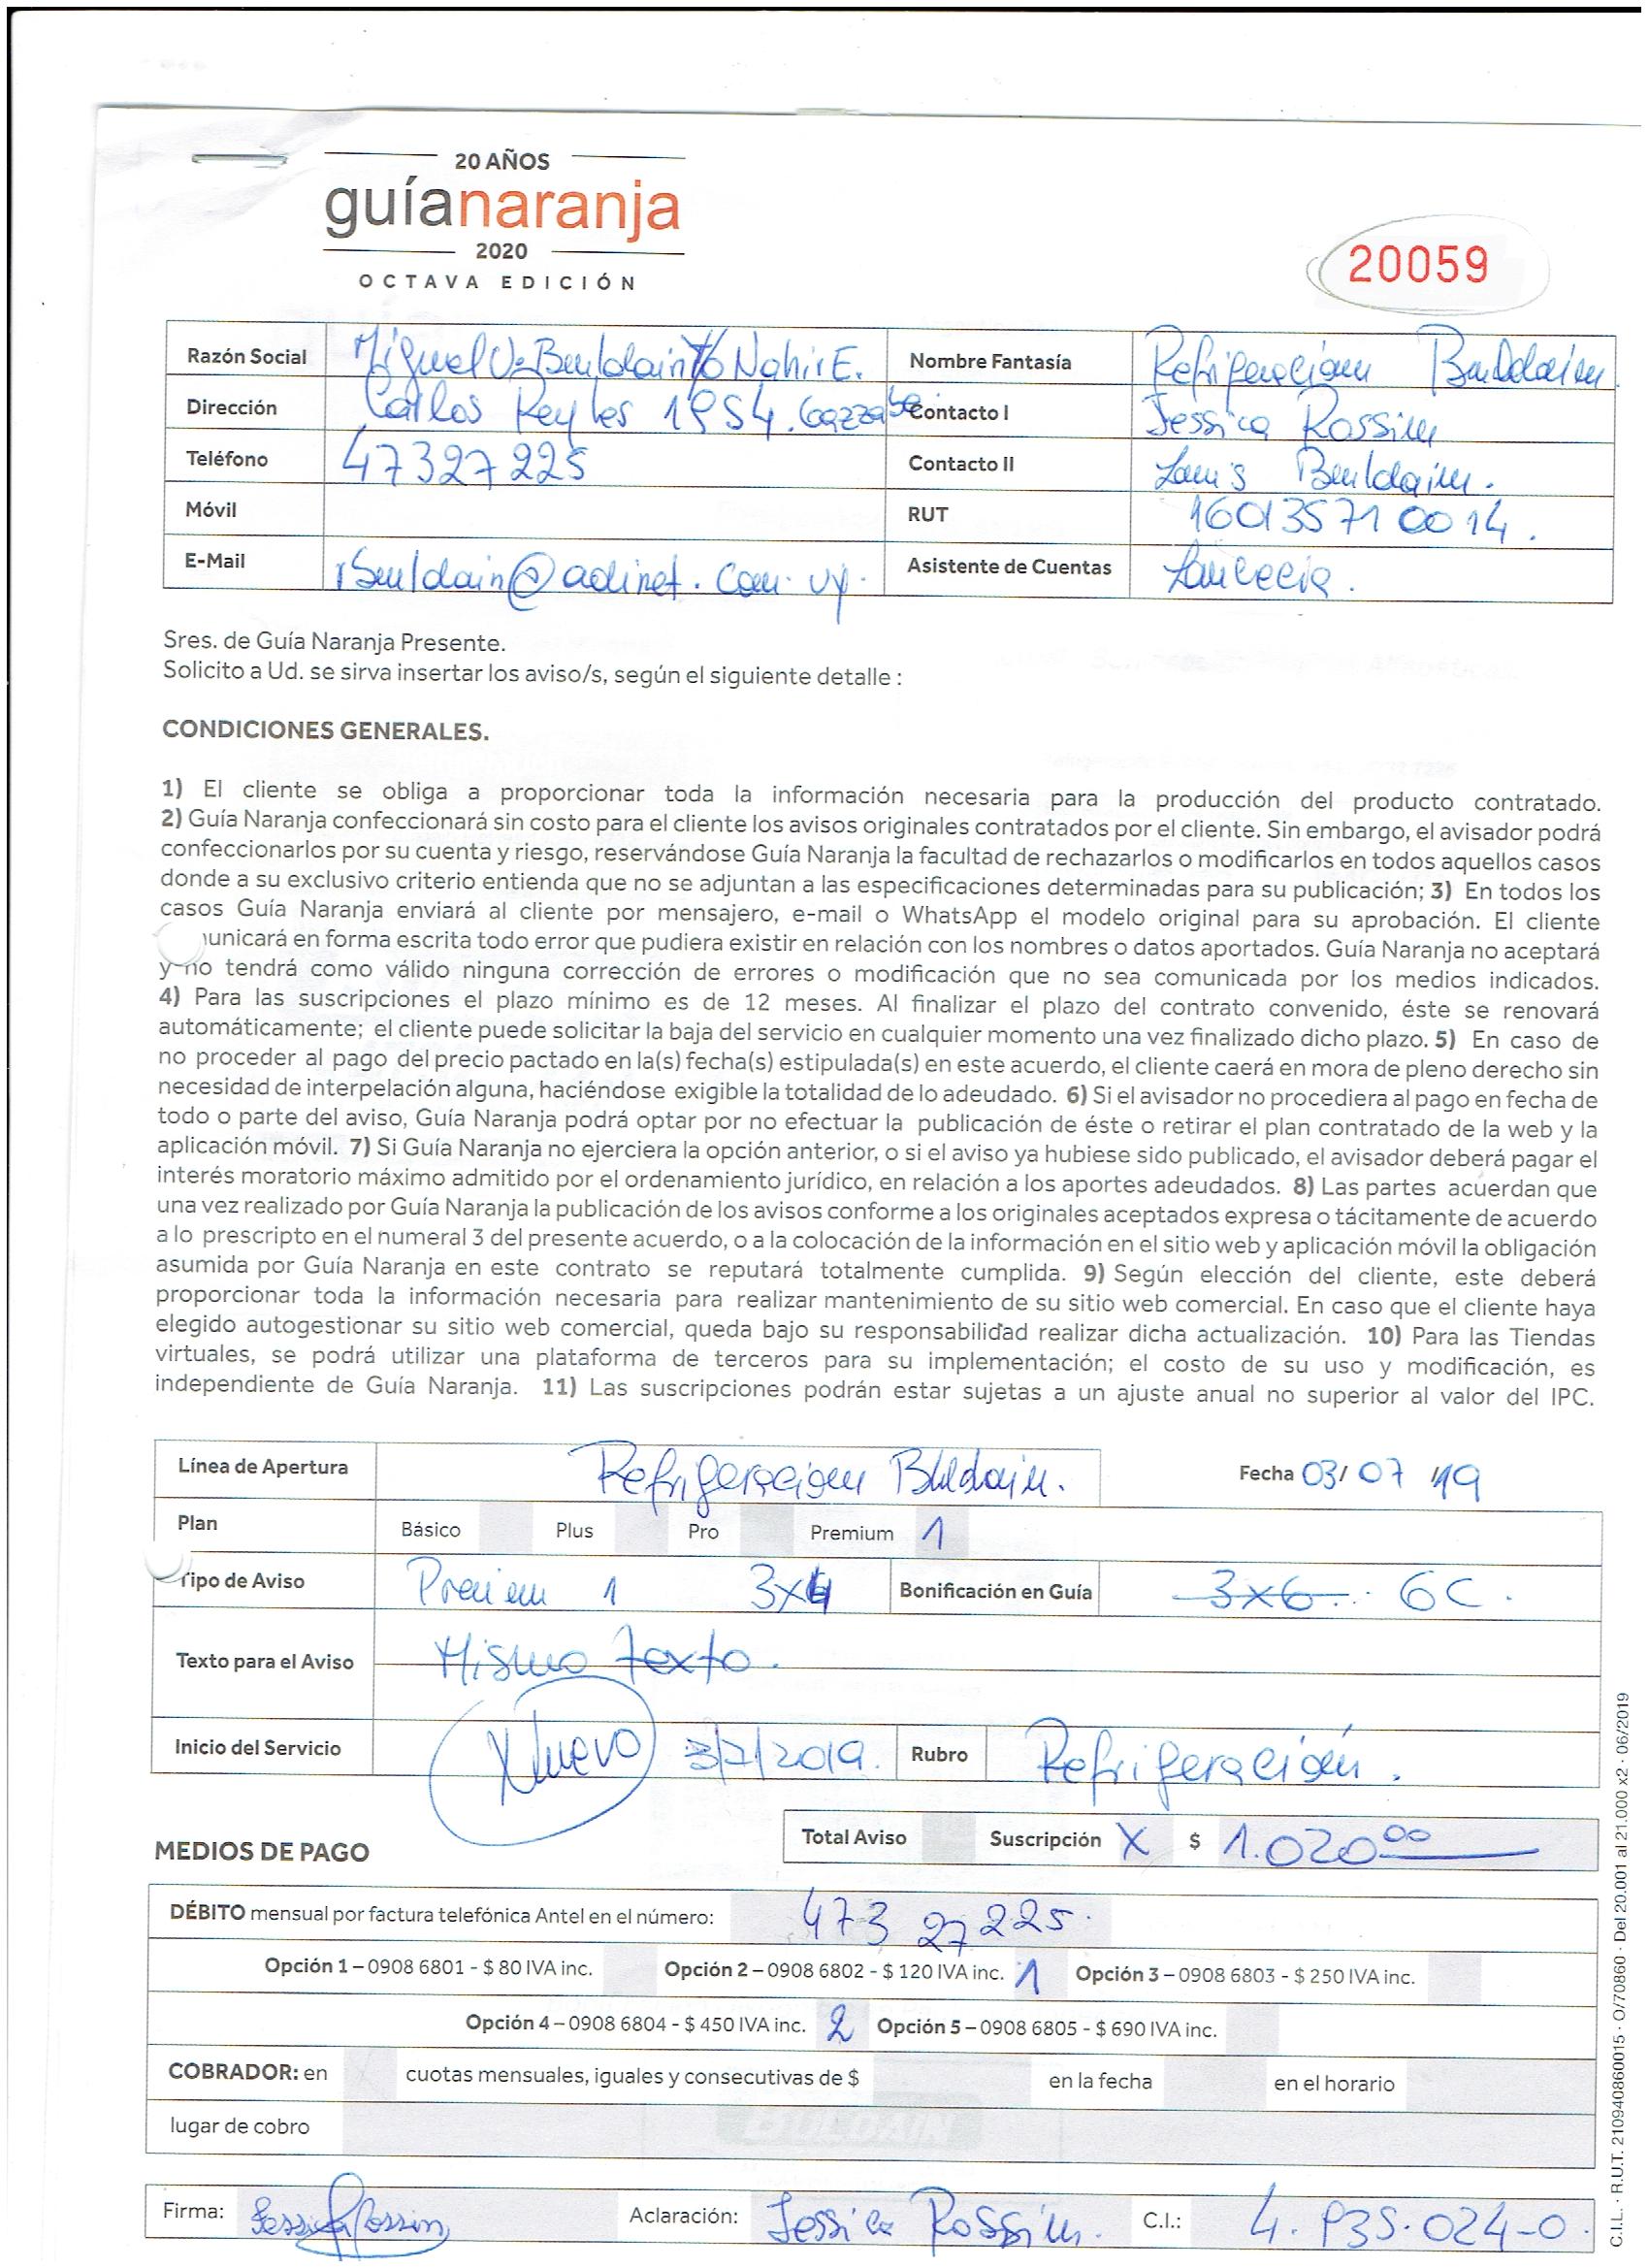 20 AÑOS
guíanaranja
2020
OCTAVA EDICIÓN
20059
Razón Social Miguel Nahir E. Nombre Fantasía Refrigeración Buldain
Dirección Carlos Reyles Contacto I Jessica Rossin
Teléfono 47327225 Contacto II Luis Buldain.
Móvil RUT 160135710014.
E-Mail rbuldain@adinet.com.uy. Asistente de Cuentas
Sres. de Guía Naranja Presente.
Solicito a Ud. se sirva insertar los aviso/s, según el siguiente detalle :
CONDICIONES GENERALES.
1) El cliente se obliga a proporcionar toda la información necesaria para la producción del producto contratado.
2) Guía Naranja confeccionará sin costo para el cliente los avisos originales contratados por el cliente. Sin embargo, el avisador podrá
confeccionarlos por su cuenta y riesgo, reservándose Guía Naranja la facultad de rechazarlos o modificarlos en todos aquellos casos
donde a su exclusivo criterio entienda que no se adjuntan a las especificaciones determinadas para su publicación; 3) En todos los
casos Guía Naranja enviará al cliente por mensajero, e-mail o WhatsApp el modelo original para su aprobación. El cliente
unicará en forma escrita todo error que pudiera existir en relación con los nombres o datos aportados. Guía Naranja no aceptará
y no tendrá como válido ninguna corrección de errores o modificación que no sea comunicada por los medios indicados.
4) Para las suscripciones el plazo mínimo es de 12 meses. Al finalizar el plazo del contrato convenido, éste se renovará
automáticamente; el cliente puede solicitar la baja del servicio en cualquier momento una vez finalizado dicho plazo. 5) En caso de
no proceder al pago del precio pactado en la(s) fecha(s) estipulada(s) en este acuerdo, el cliente caerá en mora de pleno derecho sin
necesidad de interpelación alguna, haciéndose exigible la totalidad de lo adeudado. 6) Si el avisador no procediera al pago en fecha de
todo o parte del aviso, Guía Naranja podrá optar por no efectuar la publicación de éste o retirar el plan contratado de la web y la
aplicación móvil. 7) Si Guía Naranja no ejerciera la opción anterior, o si el aviso ya hubiese sido publicado, el avisador deberá pagar el
interés moratorio máximo admitido por el ordenamiento jurídico, en relación a los aportes adeudados. 8) Las partes acuerdan que
una vez realizado por Guía Naranja la publicación de los avisos conforme a los originales aceptados expresa o tácitamente de acuerdo
a lo prescripto en el numeral 3 del presente acuerdo, o a la colocación de la información en el sitio web y aplicación móvil la obligación
asumida por Guía Naranja en este contrato se reputará totalmente cumplida. 9) Según elección del cliente, este deberá
proporcionar toda la información necesaria para realizar mantenimiento de su sitio web comercial. En caso que el cliente haya
elegido autogestionar su sitio web comercial, queda bajo su responsabilidad realizar dicha actualización. 10) Para las Tiendas
virtuales, se podrá utilizar una plataforma de terceros para su implementación; el costo de su uso y modificación, es
independiente de Guía Naranja. 11) Las suscripciones podrán estar sujetas a un ajuste anual no superior al valor del IPC.
Línea de Apertura Refrigeración Buldain. Fecha 03/07/19
Plan Básico Plus Pro Premium 1
Tipo de Aviso Premium 1 3x4 Bonificación en Guía 3x6 6C.
Texto para el Aviso Mismo texto.
Inicio del Servicio Nuevo 3/7/2019. Rubro Refrigeración.
Total Aviso Suscripción X $ 1.02000
MEDIOS DE PAGO
DÉBITO mensual por factura telefónica Antel en el número: 473 27225.
Opción 1 – 0908 6801 - $ 80 IVA inc. Opción 2 – 0908 6802 - $ 120 IVA inc. 1 Opción 3 – 0908 6803 - $ 250 IVA inc.
Opción 4 – 0908 6804 - $ 450 IVA inc. 2 Opción 5 – 0908 6805 - $ 690 IVA inc.
COBRADOR: en cuotas mensuales, iguales y consecutivas de $ en la fecha en el horario
lugar de cobro
Firma: Jessica Rossin Aclaración: Jessica Rossin. C.I.:
C.I.L. · R.U.T. 210940860015 · O/70860 · Del 20.001 al 21.000 x2 · 06/2019